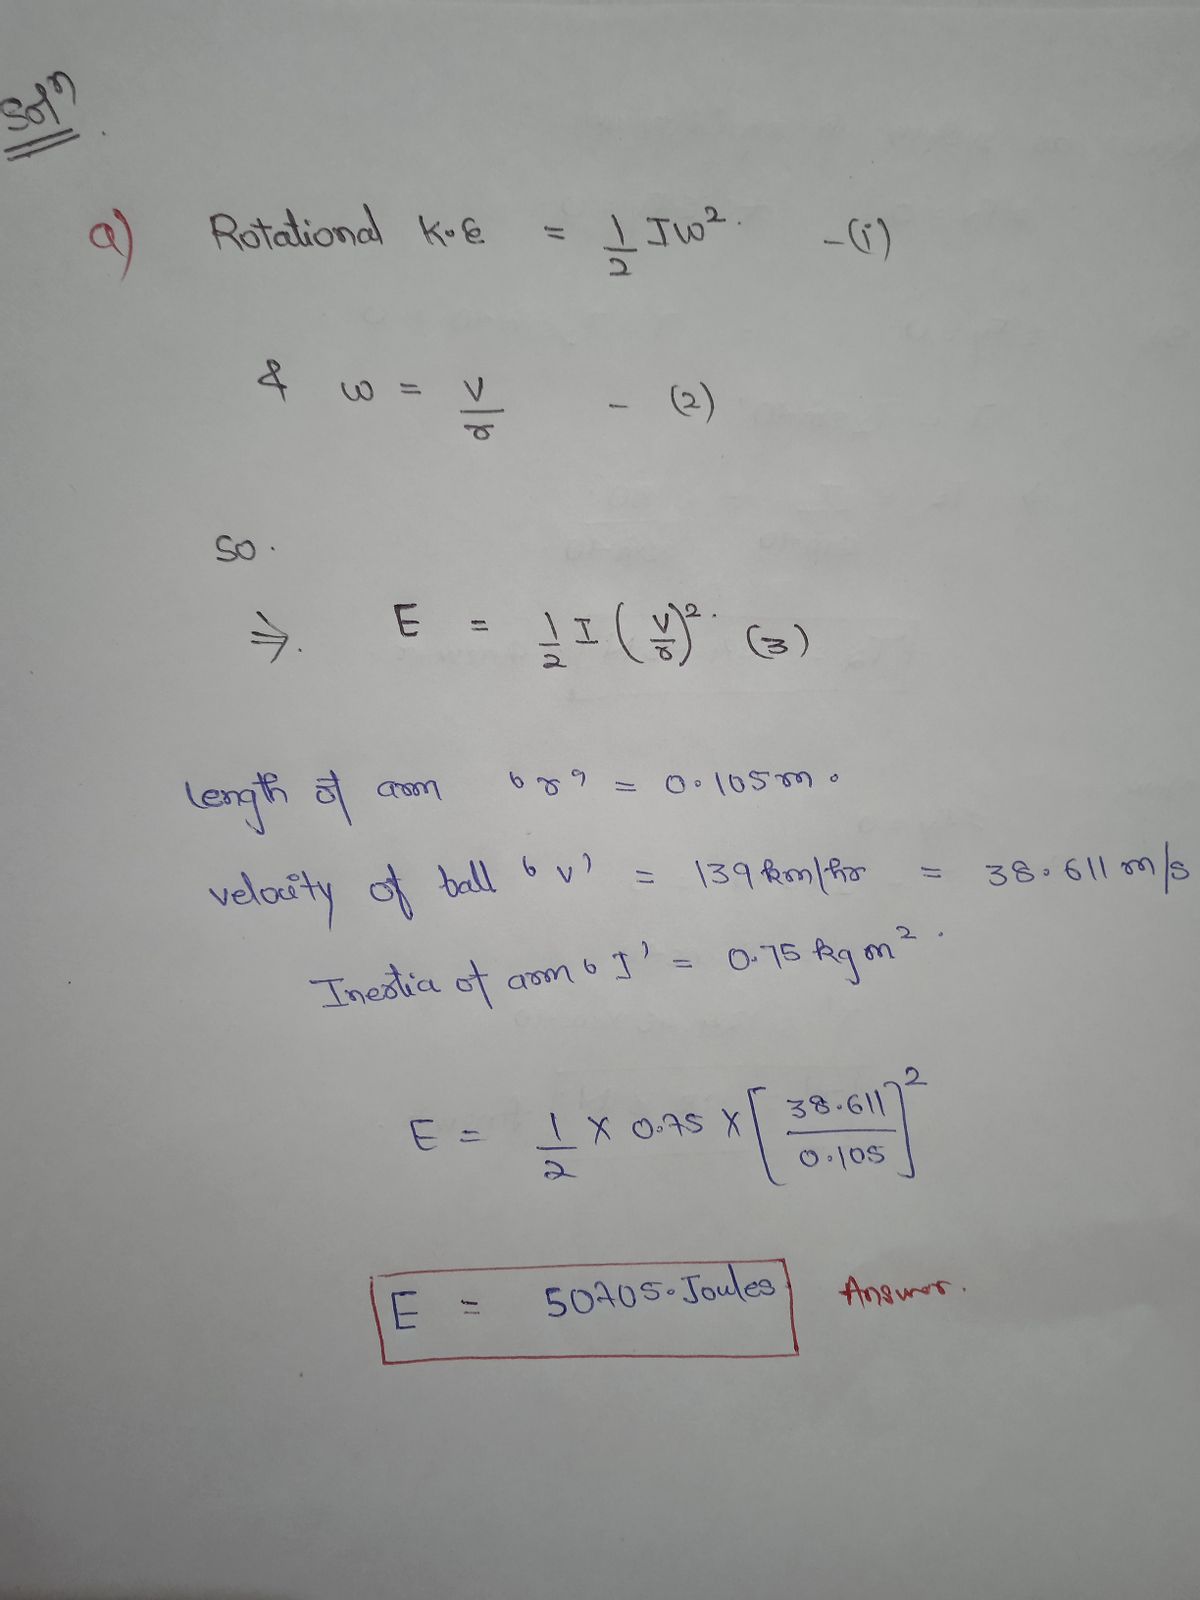 Solⁿ.
a) Rotational K.E = 1/2 Iω². -(i)
& ω = v/r - (2)
so.
⇒. E = 1/2 I (v/r)². (3)
length of arm 'r' = 0.105m.
velocity of ball 'v' = 139 km/hr = 38.611 m/s
Inertia of arm 'I' = 0.75 kgm².
E = 1/2 x 0.75 x [38.611/0.105]²
E = 50705.Joules Answer.